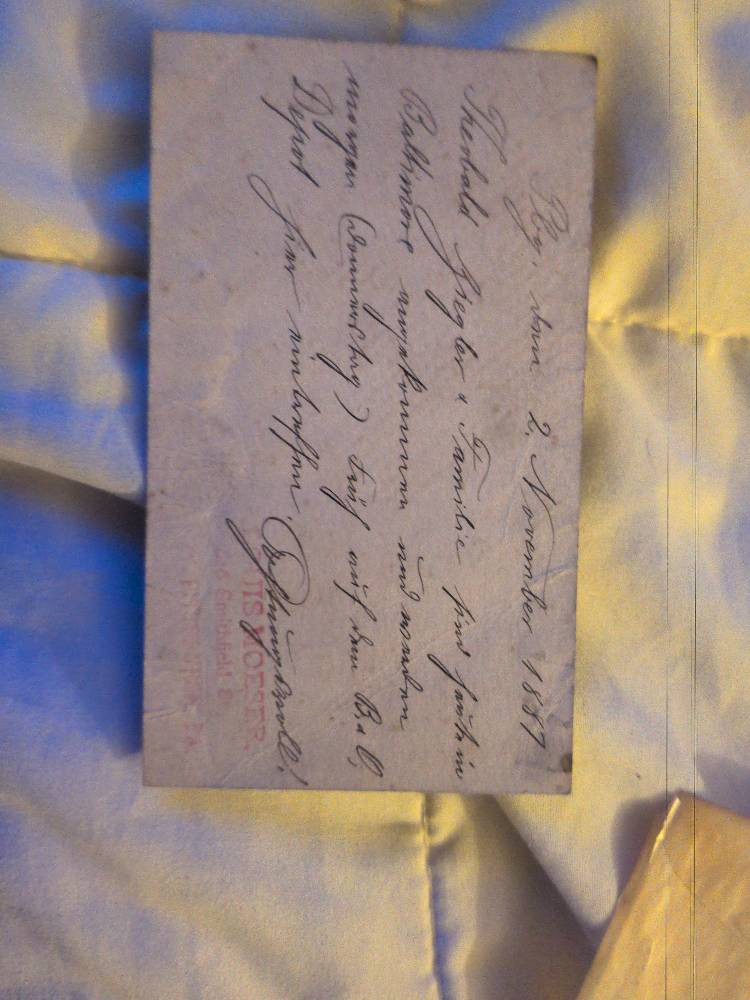 Pbg, den 2. November 1887
Theobald Ziegler & Familie sind heute in
Baltimore angekommen und werden
morgen (Donnerstag) früh auf dem B & O,
Depot hier eintreffen.
Achtungsvoll!
MOESER.
Smithfield
PA